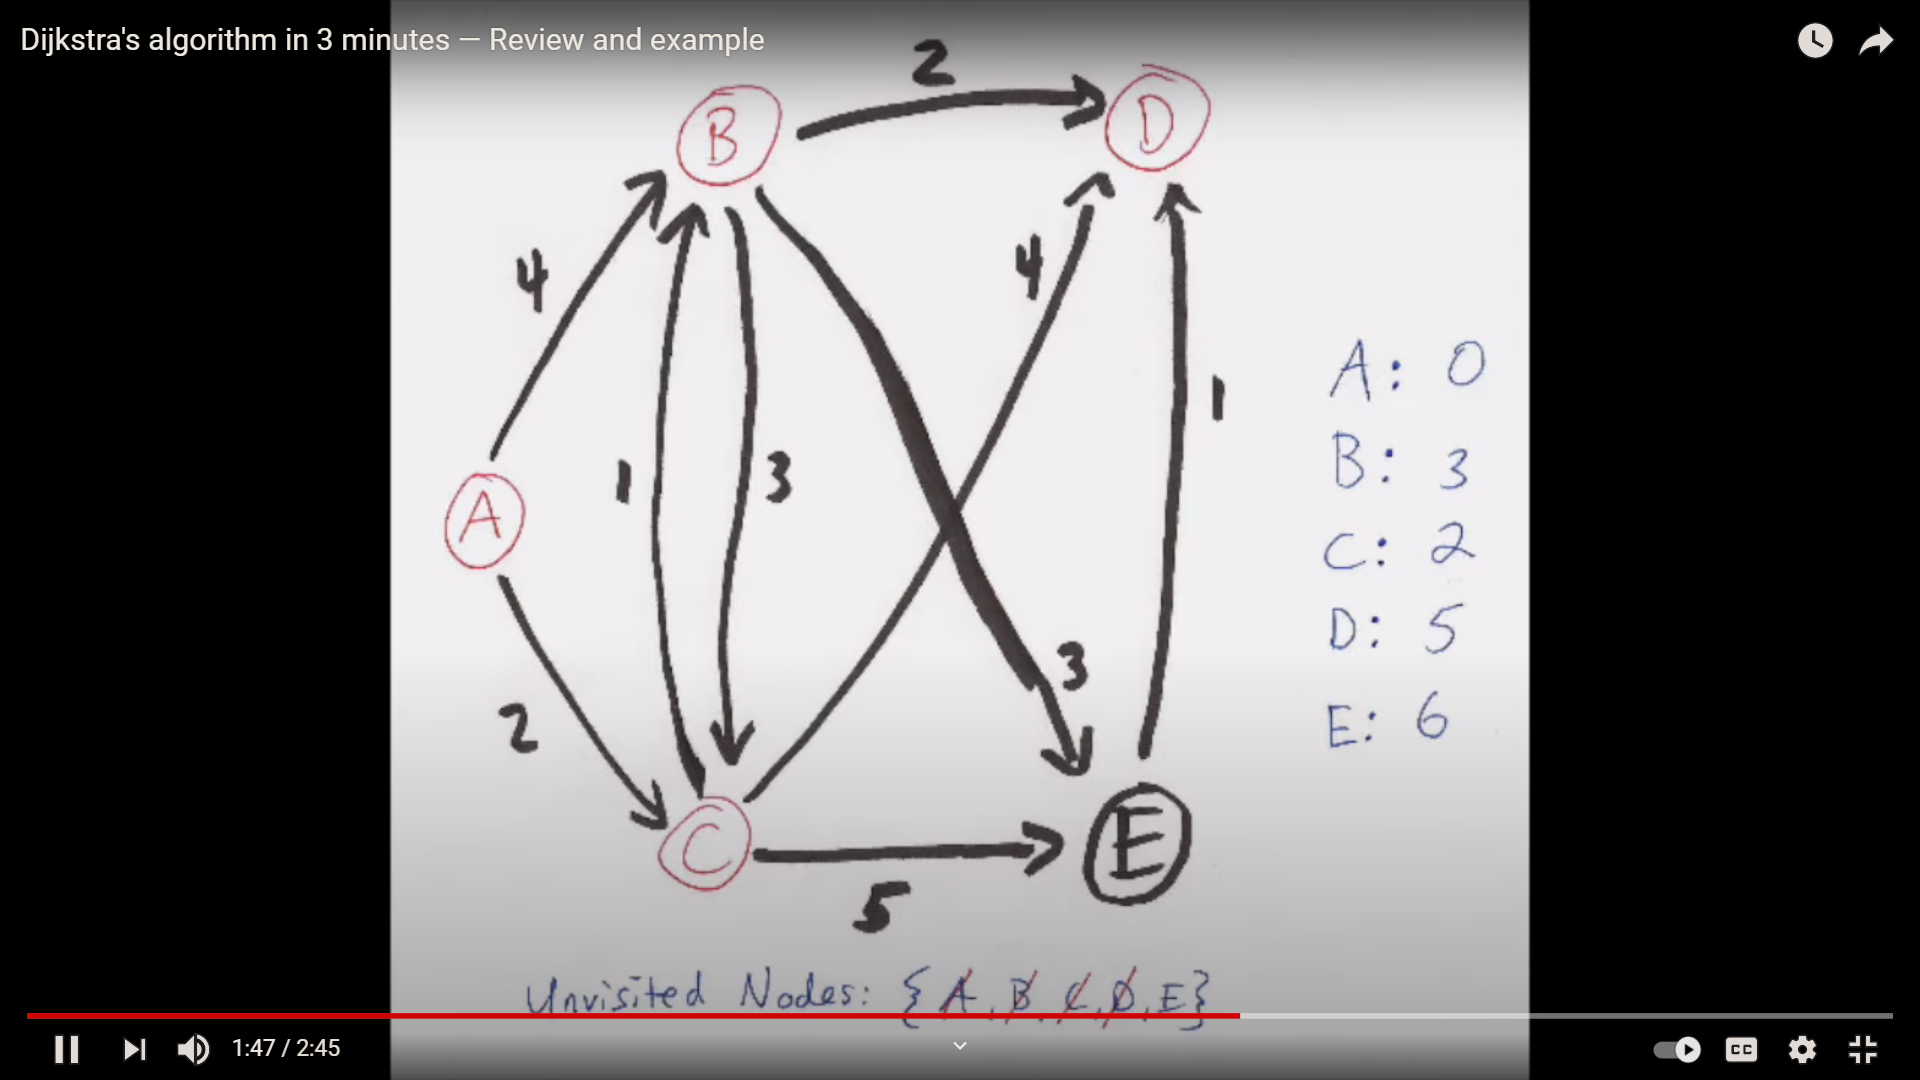 Dijkstra's algorithm in 3 minutes — Review and example
2
B
D
4
4
A: 0
1
B: 3
1
3
A
C: 2
D: 5
3
2
E: 6
C
E
5
Unvisited Nodes: {A, B, C, D, E}
1:47 / 2:45
CC